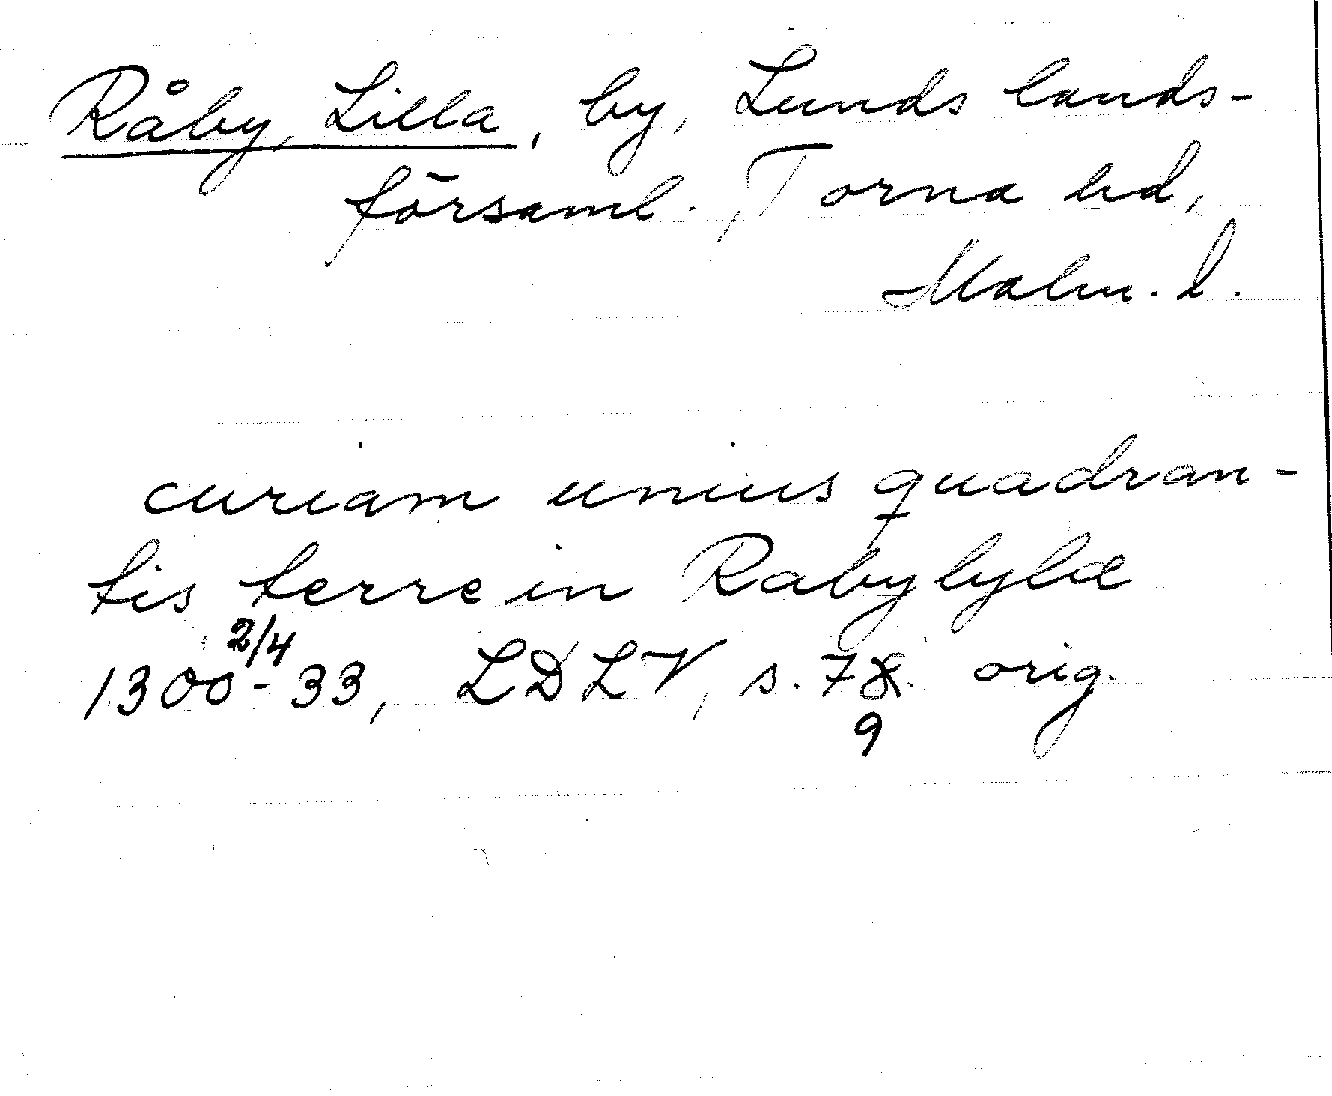 Råby, Lilla, by, Lunds lands-
församl., Torna hd,
Malm. l.
curiam unius quadran-
tis terre in Rabylylæ
2/4
1300-33, LDLV, s. 78. orig.
9